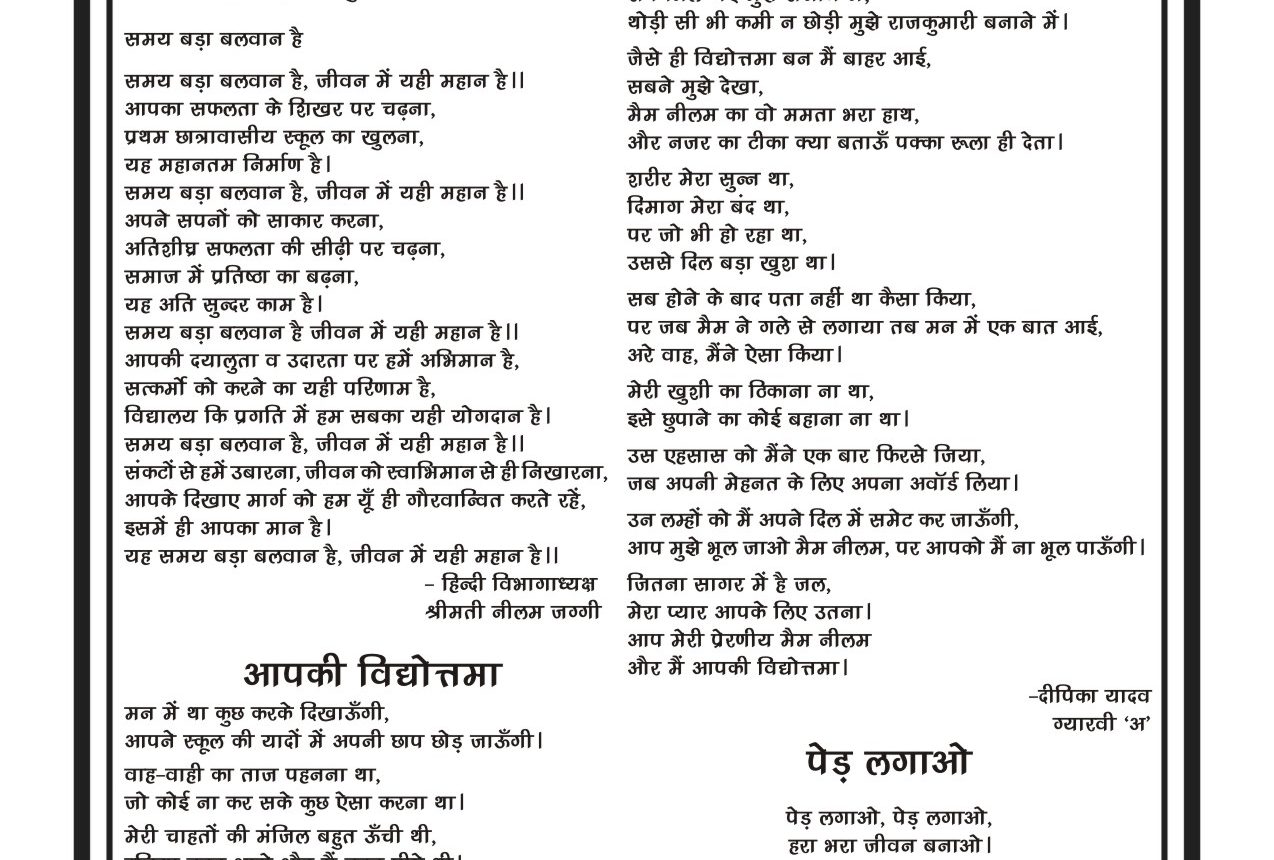 समय बड़ा बलवान है
समय बड़ा बलवान है, जीवन में यही महान है।।
आपका सफलता के शिखर पर चढ़ना,
प्रथम छात्रावासीय स्कूल का खुलना,
यह महानतम निर्माण है।
समय बड़ा बलवान है, जीवन में यही महान है।।
अपने सपनों को साकार करना,
अतिशीघ्र सफलता की सीढ़ी पर चढ़ना,
समाज में प्रतिष्ठा का बढ़ना,
यह अति सुन्दर काम है।
समय बड़ा बलवान है जीवन में यही महान है।।
आपकी दयालुता व उदारता पर हमें अभिमान है,
सत्कर्मो को करने का यही परिणाम है,
विद्यालय कि प्रगति में हम सबका यही योगदान है।
समय बड़ा बलवान है, जीवन में यही महान है।।
संकटों से हमें उबारना, जीवन को स्वाभिमान से ही निखारना,
आपके दिखाए मार्ग को हम यूँ ही गौरवान्वित करते रहें,
इसमें ही आपका मान है।
यह समय बड़ा बलवान है, जीवन में यही महान है।।
– हिन्दी विभागाध्यक्ष
श्रीमती नीलम जग्गी
आपकी विद्योत्तमा
मन में था कुछ करके दिखाऊँगी,
आपने स्कूल की यादों में अपनी छाप छोड़ जाऊँगी।
वाह-वाही का ताज पहनना था,
जो कोई ना कर सके कुछ ऐसा करना था।
मेरी चाहतों की मंजिल बहुत ऊँची थी,
थोड़ी सी भी कमी न छोड़ी मुझे राजकुमारी बनाने में।
जैसे ही विद्योत्तमा बन मैं बाहर आई,
सबने मुझे देखा,
मैम नीलम का वो ममता भरा हाथ,
और नजर का टीका क्या बताऊँ पक्का रूला ही देता।
शरीर मेरा सुन्न था,
दिमाग मेरा बंद था,
पर जो भी हो रहा था,
उससे दिल बड़ा खुश था।
सब होने के बाद पता नहीं था कैसा किया,
पर जब मैम ने गले से लगाया तब मन में एक बात आई,
अरे वाह, मैंने ऐसा किया।
मेरी खुशी का ठिकाना ना था,
इसे छुपाने का कोई बहाना ना था।
उस एहसास को मैंने एक बार फिरसे जिया,
जब अपनी मेहनत के लिए अपना अवॉर्ड लिया।
उन लम्हों को मैं अपने दिल में समेट कर जाऊँगी,
आप मुझे भूल जाओ मैम नीलम, पर आपको मैं ना भूल पाऊँगी।
जितना सागर में है जल,
मेरा प्यार आपके लिए उतना।
आप मेरी प्रेरणीय मैम नीलम
और मैं आपकी विद्योत्तमा।
–दीपिका यादव
ग्यारवी ‘अ’
पेड़ लगाओ
पेड़ लगाओ, पेड़ लगाओ,
हरा भरा जीवन बनाओ।